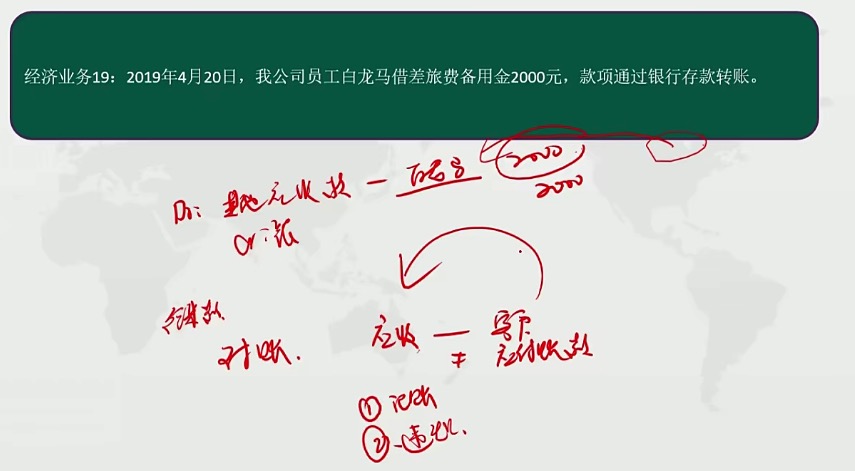 经济业务19：2019年4月20日，我公司员工白龙马借差旅费备用金2000元，款项通过银行存款转账。
2000
Dr：其他应收款 — 白龙马
2000
Cr：银
对账.
应收 — 客户
≠ 应付账款
① 记账
②